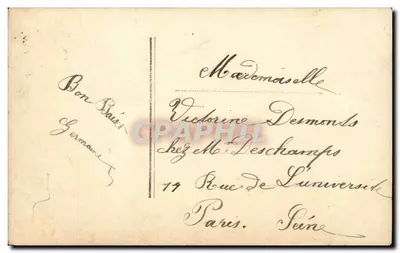 Bon Baiser
Germaine
Mademoiselle
Victorine Desmonts
chez Mr Deschamps
19 Rue de L'université
Paris. Seine
CARTORUM